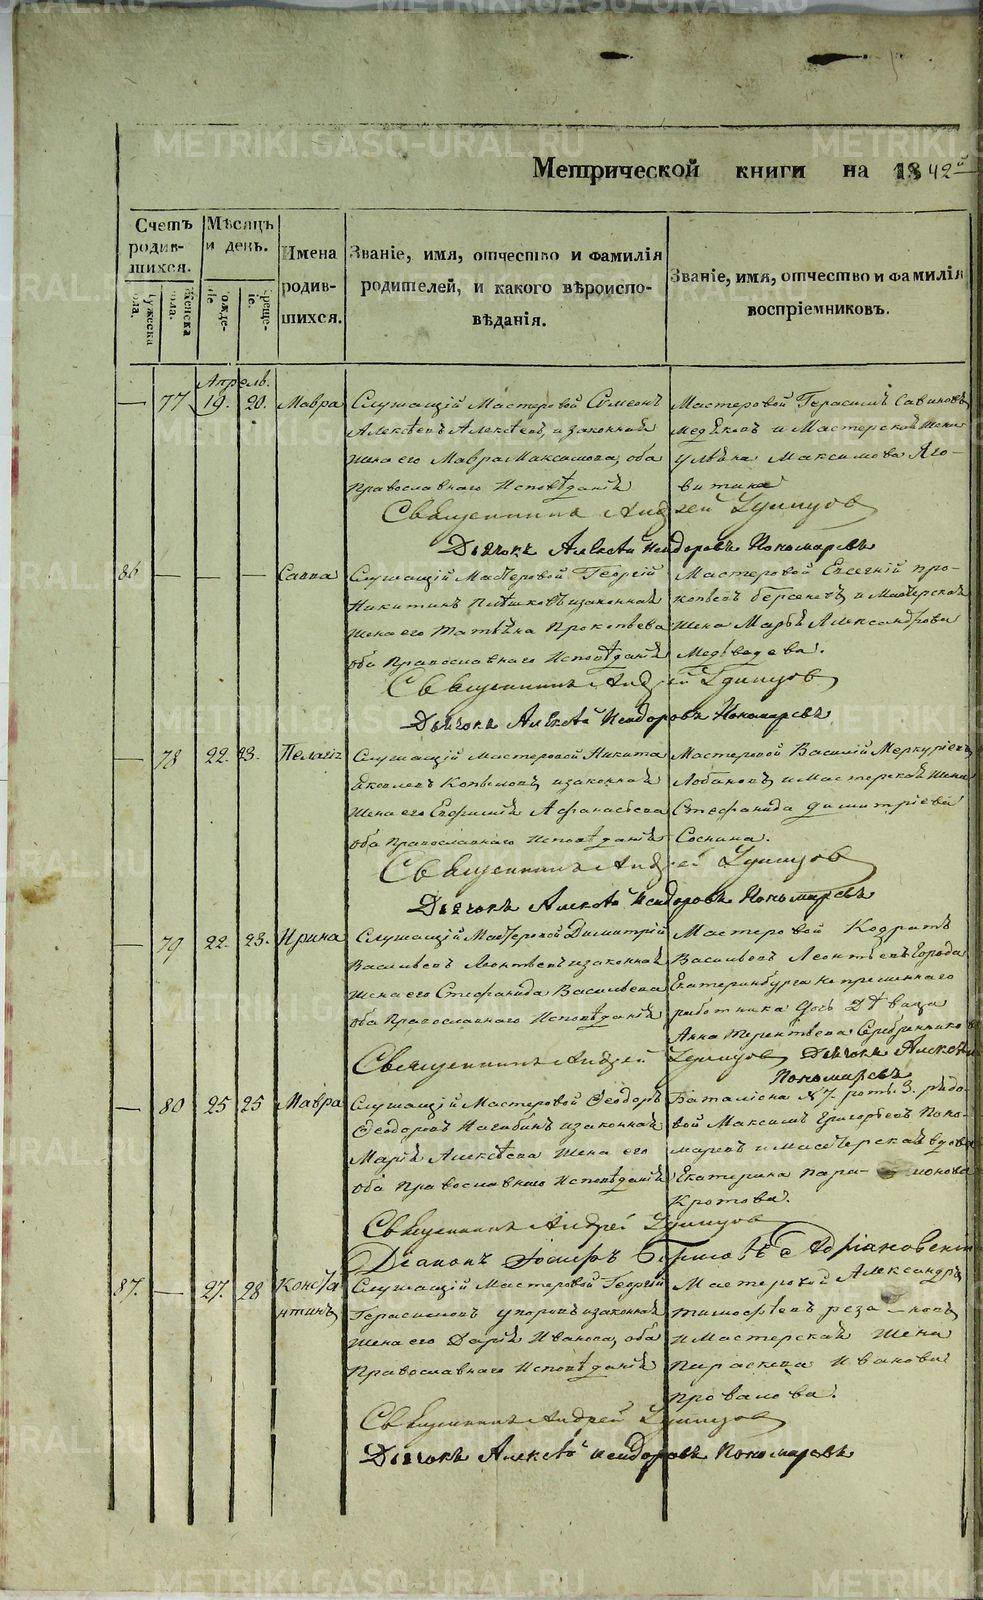 METRIKI.GASO-URAL.RU
Метрической книги на 1842й
Счетъ родившихся.
Мѣсяцъ и день.
Имена родившихся.
Званіе, имя, отчество и фамилія родителей, и какого вѣроисповѣданія.
Званіе, имя, отчество и фамилія воспріемниковъ.
Мужеска пола.
Женска пола.
Апрель.
— 77 19. 20. Мавра
Служащій Мастеровой Симеонъ
Алексѣевъ Алексѣевъ, и законная
жена его Мавра Максимова, оба
Православнаго Исповѣданія
Мастеровой Герасимъ Савиновъ
Медѣковъ и Мастерская жена
Ульяна Максимова
Священникъ Андрей Удинцов
Дьячокъ Алексѣй Исидоровъ Пономаревъ
86 — — — Савва
Служащій Мастеровой Георгій
Никитинъ Пѣшковъ и законная
жена его Татьяна Прокопьева
оба Православнаго Исповѣданія
Мастеровой Евгеній Про-
копьевъ Берсеневъ, и Мастерская
жена Марья Александрова
Медведева.
Священникъ Андрей Удинцов
Дьячокъ Алексѣй Исидоровъ Пономаревъ
— 78 22. 23. Пелагія
Служащій мастеровой Никита
Яковлевъ Копыловъ, и законная
жена его Евфимія Афанасьева
оба Православнаго Исповѣданія
Мастеровой Василій Меркурьевъ
Лобановъ, и мастерская жена
Стефанида Димитріева
Соснина.
Священникъ Андрей Удинцов
Дьячокъ Алексѣй Исидоровъ Пономаревъ
— 79 22. 23. Ирина
Служащій Мастеровой Димитрій
Васильевъ Леонтьевъ и законная
жена его Стефанида Васильева
оба Православнаго Исповѣданія
Мастеровой Кодратъ
Васильевъ Леонтьевъ Города
Екатеринбурга непременнаго
работника дочь Дѣвица
Анна Терентьева Серебренникова
Священникъ Андрей Удинцов Дьячокъ Алексѣй
Пономаревъ
— 80 25 25 Мавра
Служащій Мастеровой Феодоръ
Феодоровъ Нагибинъ и законная
Марія Алексѣева жена его
оба Православнаго Исповѣданія
Баталіона №7. роты 3. рядо-
вой Максимъ Григорьевъ Поно-
маревъ и мастерская вдова
Екатерина Пара- монова
Кротова.
Священникъ Андрей Удинцов
Діаконъ
87. — 27. 28 Конста
нтинъ
Служащій Мастеровой Георгій
Герасимовъ Упоровъ и законная
жена его Дарія Иванова, оба
Православнаго Исповѣданія
Мастеровой Александръ
Тимофѣевъ реза- новъ,
и Мастерская жена
Параскева Иванова
Провалова.
Священникъ Андрей Удинцов
Дьячокъ Алексѣй Исидоровъ Пономаревъ